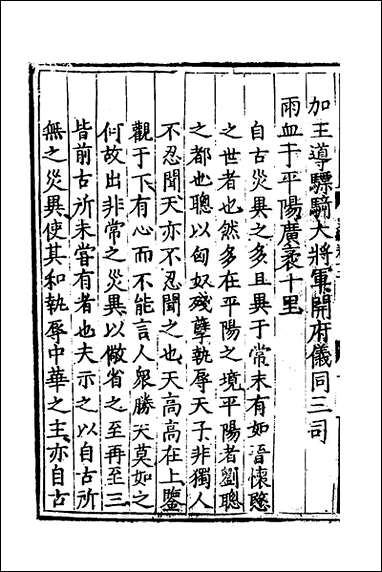 加王導驃騎大將軍開府儀同三司
雨血于平陽廣袤十里
自古災異之多且異于常未有如晉懷愍
之世者也然多在平陽之境平陽者劉聰
之都也聰以匈奴殘孽執辱天子非獨人
不忍聞天亦不忍聞之也天高高在上鑒
觀于下有心而不能言人衆勝天莫如之
何故出非常之災異以儆省之至再至三
皆前古所未嘗有者也夫示之以自古所
無之災異使其和執辱中華之主亦自古